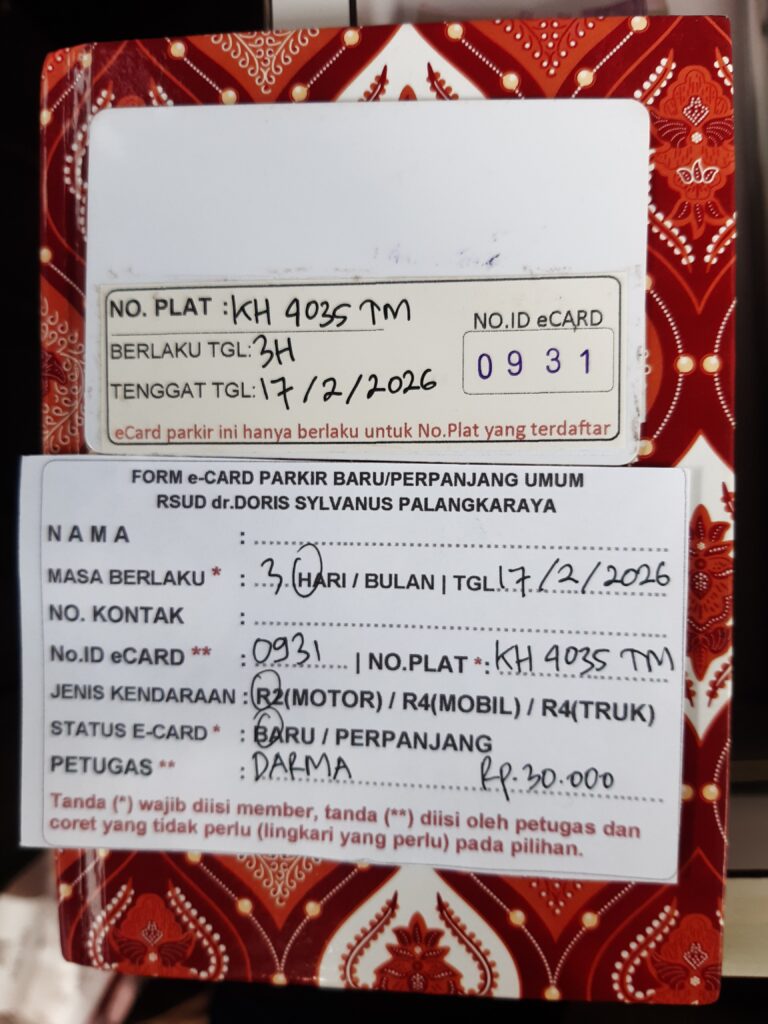 NO. PLAT : KH 4035 TM
BERLAKU TGL: 3H
TENGGAT TGL: 17/2/2026
NO.ID eCARD
0931
eCard parkir ini hanya berlaku untuk No.Plat yang terdaftar
FORM e-CARD PARKIR BARU/PERPANJANG UMUM
RSUD dr.DORIS SYLVANUS PALANGKARAYA
NAMA :
MASA BERLAKU * : 3 HARI / BULAN | TGL 17/2/2026
NO. KONTAK :
No.ID eCARD ** : 0931 | NO.PLAT *: KH 4035 TM
JENIS KENDARAAN : R2(MOTOR) / R4(MOBIL) / R4(TRUK)
STATUS E-CARD * : BARU / PERPANJANG
PETUGAS ** : DARMA Rp.30.000
Tanda (*) wajib diisi member, tanda (**) diisi oleh petugas dan
coret yang tidak perlu (lingkari yang perlu) pada pilihan.